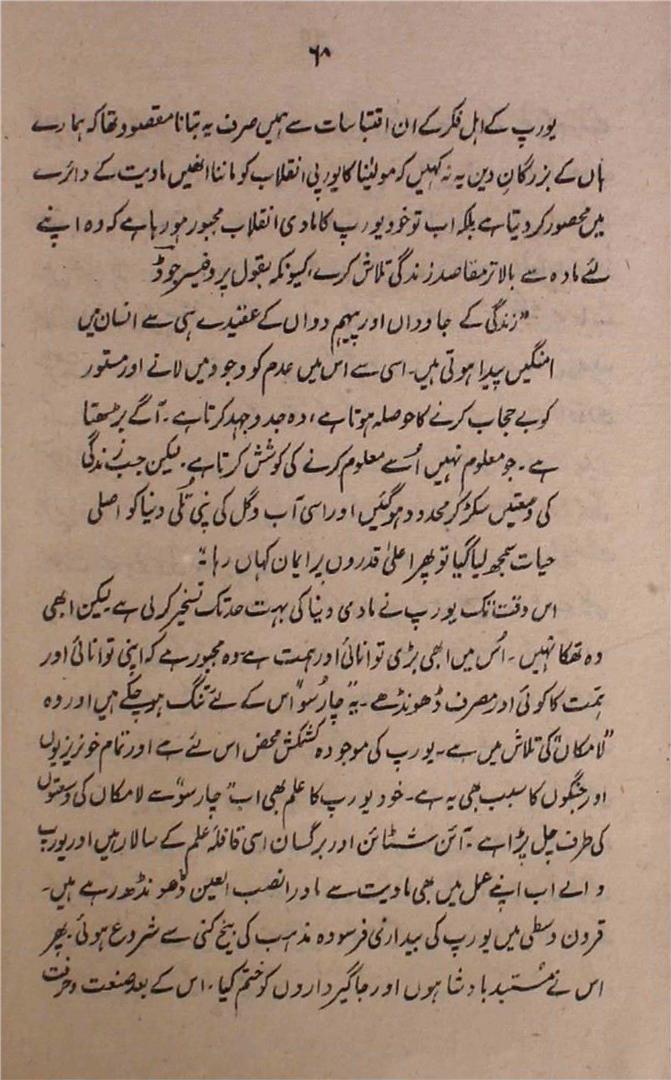 ۶۸
یورپ کے اہل فکر کے ان اقتباسات سے ہمیں صرف یہ بتانا مقصود تھا کہ ہمارے
ہاں کے بزرگان دین یہ نہ کہیں کہ مولینا کا یورپی انقلاب کو ماننا انھیں مادیت کے دائرے
میں محصور کر دیتا ہے بلکہ اب تو خود یورپ کا مادی انقلاب مجبور ہو رہا ہے کہ وہ اپنے
لئے مادہ سے بالا تر مقاصد زندگی تلاش کرے، کیونکہ بقول پروفیسر جوڈ
"زندگی کے جاوداں اور پیہم دواں کے عقیدے ہی سے انسان میں
امنگیں پیدا ہوتی ہیں۔ اسی سے اس میں عدم کو وجود میں لانے اور مستور
کو بے حجاب کرنے کا حوصلہ ہوتا ہے، وہ جدوجہد کرتا ہے۔ آگے بڑھتا
ہے۔ جو معلوم نہیں اُسے معلوم کرنے کی کوشش کرتا ہے۔ لیکن جب زندگی
کی وسعتیں سکڑ کر محدود ہو گئیں اور اسی آب و گل کی نپی تُلی دنیا کو اصلی
حیات سمجھ لیا گیا تو پھر اعلیٰ قدروں پر ایمان کہاں رہا۔"
اس وقت تک یورپ نے مادی دنیا کی بہت حد تک تسخیر کر لی ہے لیکن ابھی
وہ تھکا نہیں۔ اُس میں ابھی بڑی توانائی اور ہمت ہے وہ مجبور ہے کہ اپنی توانائی اور
ہمّت کا کوئی اور مصرف ڈھونڈھے۔ یہ "چار سُو" اس کے لئے تنگ ہو چکے ہیں اور وہ
"لا مکاں" کی تلاش میں ہے۔ یورپ کی موجودہ کشمکش محض اس لئے ہے اور تمام خونریزیوں
اور جنگوں کا سبب بھی یہ ہے۔ خود یورپ کا علم بھی اب "چار سو" سے لا مکاں کی وسعتوں
کی طرف چل پڑا ہے۔ آئن سٹائن اور برگساں اسی قافلۂ علم کے سالار ہیں اور یورپ
والے اب اپنے عمل میں بھی مادیت سے ماورا نصب العین ڈھونڈھ رہے ہیں۔
قرون وسطی میں یورپ کی بیداری فرسودہ مذہب کی بیخ کنی سے شروع ہوئی۔ پھر
اس نے مستبد بادشاہوں اور جاگیرداروں کو ختم کیا۔ اس کے بعد صنعت و حرفت